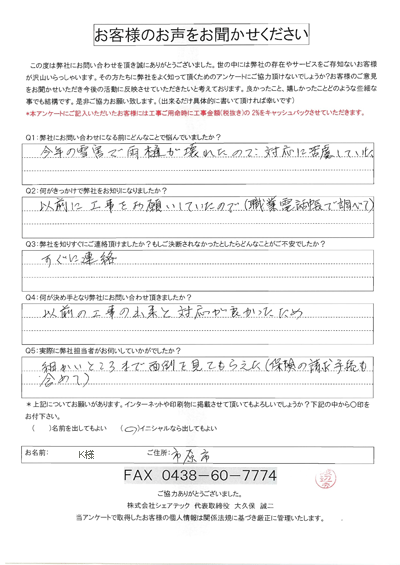 お客様のお声をお聞かせください
この度は弊社にお問い合わせを頂き誠にありがとうございました。世の中には弊社の存在やサービスをご存知ないお客様
が沢山いらっしゃいます。その方たちに弊社をよく知って頂くためのアンケートにご協力頂けないでしょうか?お客様のご意見
をお聞かせいただき今後の活動に反映させていただきたいと考えております。良かったこと、嬉しかったことどのような些細な
事でも結構です。是非ご協力お願い致します。(出来るだけ具体的に書いて頂ければ幸いです)
*本アンケートにご記入いただいたお客様には工事ご用命時に工事金額(税抜き)の2%をキャッシュバックさせていただきます。
Q1:弊社にお問い合わせになる前にどんなことで悩んでいましたか?
今年の雪害で雨樋が壊れたので、対応に苦慮していた
Q2:何がきっかけで弊社をお知りになりましたか?
以前に工事をお願いしていたので(職業電話帳で調べて)
Q3:弊社を知りすぐにご連絡頂けましたか?もしご決断されなかったとしたらどんなことがご不安でしたか?
すぐに連絡
Q4:何が決め手となり弊社にお問い合わせ頂きましたか?
以前の工事の出来と対応が良かったため
Q5:実際に弊社担当者がお伺いしていかがでしたか?
細かいところまで面倒を見てもらえた(保険の請求手続も
含めて)
*上記についてお願いがあります。インターネットや印刷物に掲載させて頂いてもよろしいでしょうか?下記の中から〇印を
お付け下さい。
( )名前を出してもよい (○)イニシャルなら出してもよい
お名前: K様 ご住所: 市原市
FAX 0438-60-7774
ご協力ありがとうございました。
株式会社シェアテック 代表取締役 大久保 誠二
当アンケートで取得したお客様の個人情報は関係法規に基づき厳正に管理いたします。